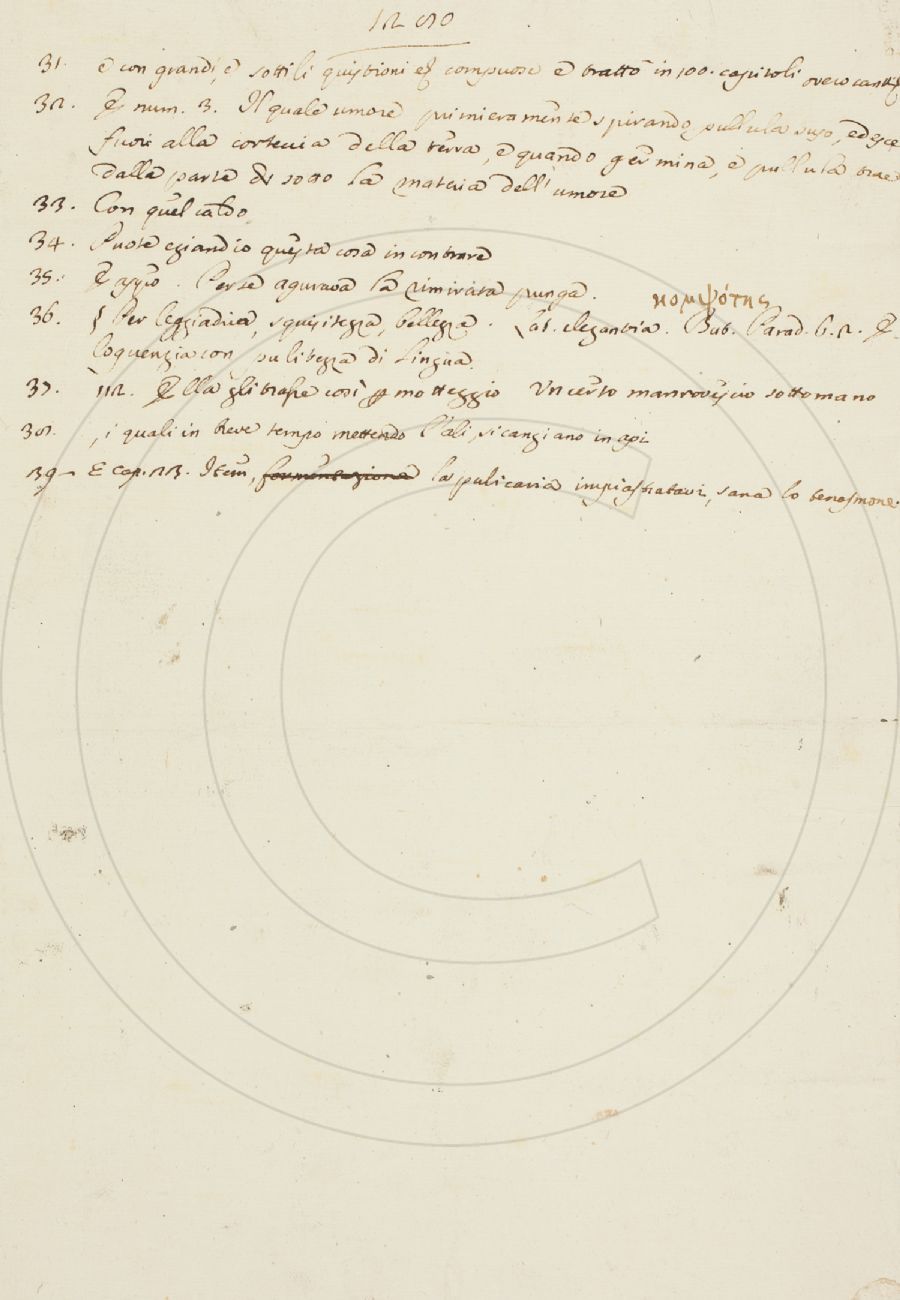 31. e con grandi, e sottili quistioni compuose e tratto in 100. capitoli overo canti
32. num. 3. Il quale umore primieramente spirando pullula suso, ed esce
fuori alla corteccia della terra, e quando germina, e pullula trae
dalla parte di sotto la materia dell' umore
33. Con quel caldo.
34. Puote eziandio questa cosa incontrare
35. Perse aguzava la rimirata punga.
κομψότης
36. § Per leggiadria, squisitezza, bellezza. Lat. elegantia. But. Parad. 6. 2.
loquenzia con pulitezza di Lingua.
37. 112. Ella gli trasse così motteggio Un certo manrovescio sottomano
38. , i quali in breve tempo mettendo l'ali, si cangiano in api
39 E cap. 23. Item, la pulicaria impiastratavi, sana lo tenasmone.